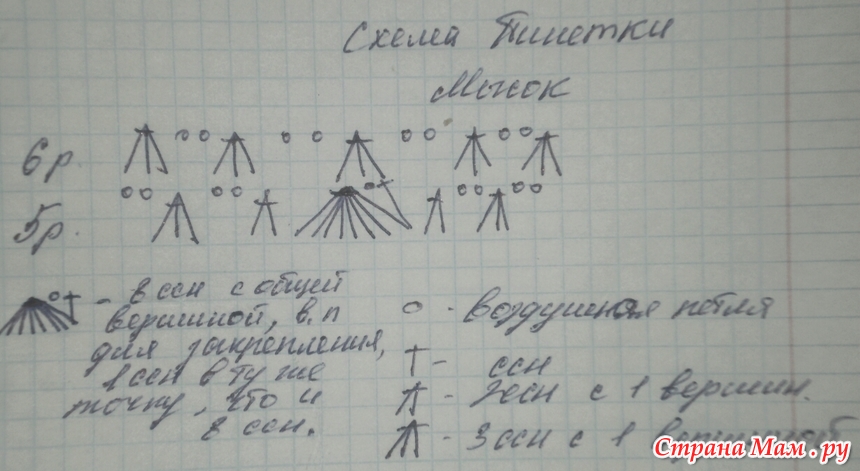 Схема Пинетки
Мысок
6р.
5р.
- 8 ссн с общей
вершиной, в.п
для закрепления,
1 ссн в ту же
точку, что и
8 ссн.
- воздушная петля
- ссн
- 2ссн с 1 вершин.
- 3 ссн с 1 вершиной
Страна Мам.ру